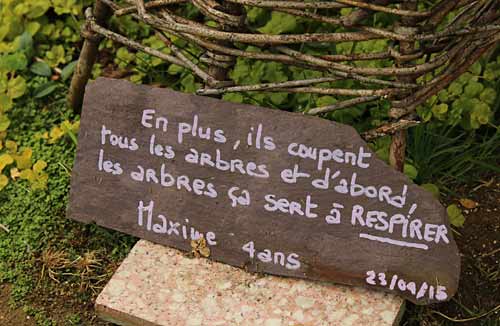 En plus, ils coupent
tous les arbres et d'abord,
les arbres ça sert à RESPIRER
Maxime 4ans
23/04/15